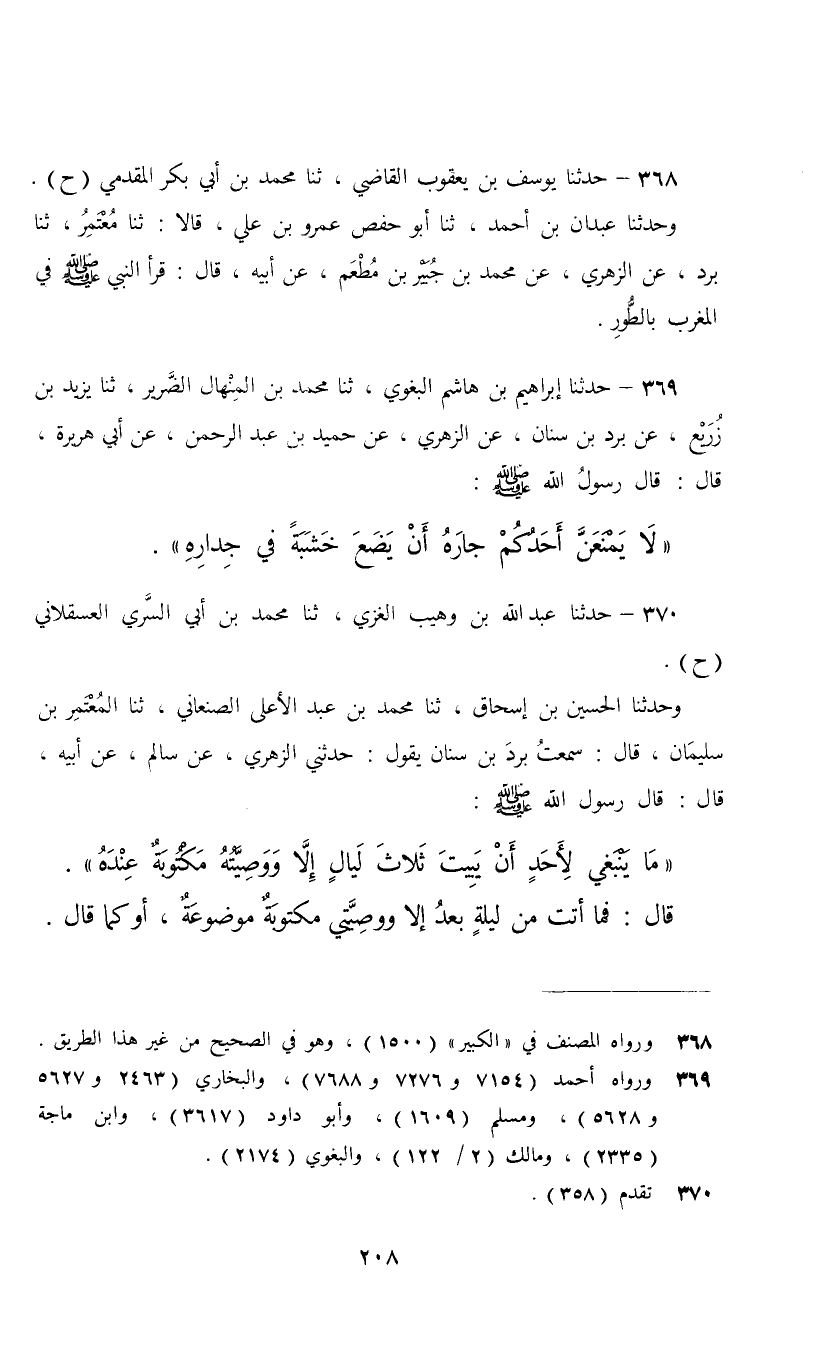 ٣٦٨ – حدثنا يوسف بن يعقوب القاضي ، ثنا محمد بن أبي بكر المقدمي (ح) .
وحدثنا عبدان بن أحمد ، ثنا أبو حفص عمرو بن علي ، قالا : ثنا مُعْتَمِرُ ، ثنا
برد ، عن الزهري ، عن محمد بن جُبَيْر بن مُطْعَم ، عن أبيه ، قال : قرأ النبي ﷺ في
المغرب بالطُّورِ .
٣٦٩ – حدثنا إبراهيم بن هاشم البغوي ، ثنا محمد بن المِنْهال الضَّرير ، ثنا يزيد بن
زُرَيْع ، عن برد بن سنان ، عن الزهري ، عن حميد بن عبد الرحمن ، عن أبي هريرة ،
قال : قال رسولُ الله ﷺ :
« لَا يَمْنَعَنَّ أَحَدُكُمْ جارَهُ أَنْ يَضَعَ خَشَبَةً في جِدارِهِ» .
٣٧٠ – حدثنا عبد الله بن وهيب الغزي ، ثنا محمد بن أبي السَّري العسقلاني
(ح) .
وحدثنا الحسين بن إسحاق ، ثنا محمد بن عبد الأعلى الصنعاني ، ثنا المُعْتَمِر بن
سليمَان ، قال : سمعتُ بردَ بن سنان يقول : حدثني الزهري ، عن سالم ، عن أبيه ،
قال : قال رسول الله ﷺ :
« مَا يَنْبَغي لِأَحَدٍ أَنْ يَبِيتَ ثَلاثَ لَيالٍ إِلَّا وَوَصِيَّتُهُ مَكْتُوبَةٌ عِنْدَهُ» .
قال : فما أتت من ليلةٍ بعدُ إلا ووصِيَّتي مكتوبَةٌ موضوعَةٌ ، أو كما قال .
٣٦٨ ورواه المصنف في «الكبير» (١٥٠٠) ، وهو في الصحيح من غير هذا الطريق .
٣٦٩ ورواه أحمد (٧١٥٤ و ٧٢٧٦ و ٧٦٨٨) ، والبخاري (٢٤٦٣ و ٥٦٢٧
و ٥٦٢٨) ، ومسلم (١٦٠٩) ، وأبو داود (٣٦١٧) ، وابن ماجة
(٢٣٣٥) ، ومالك (٢ / ١٢٢) ، والبغوي (٢١٧٤) .
٣٧٠ تقدم (٣٥٨) .
٢٠٨